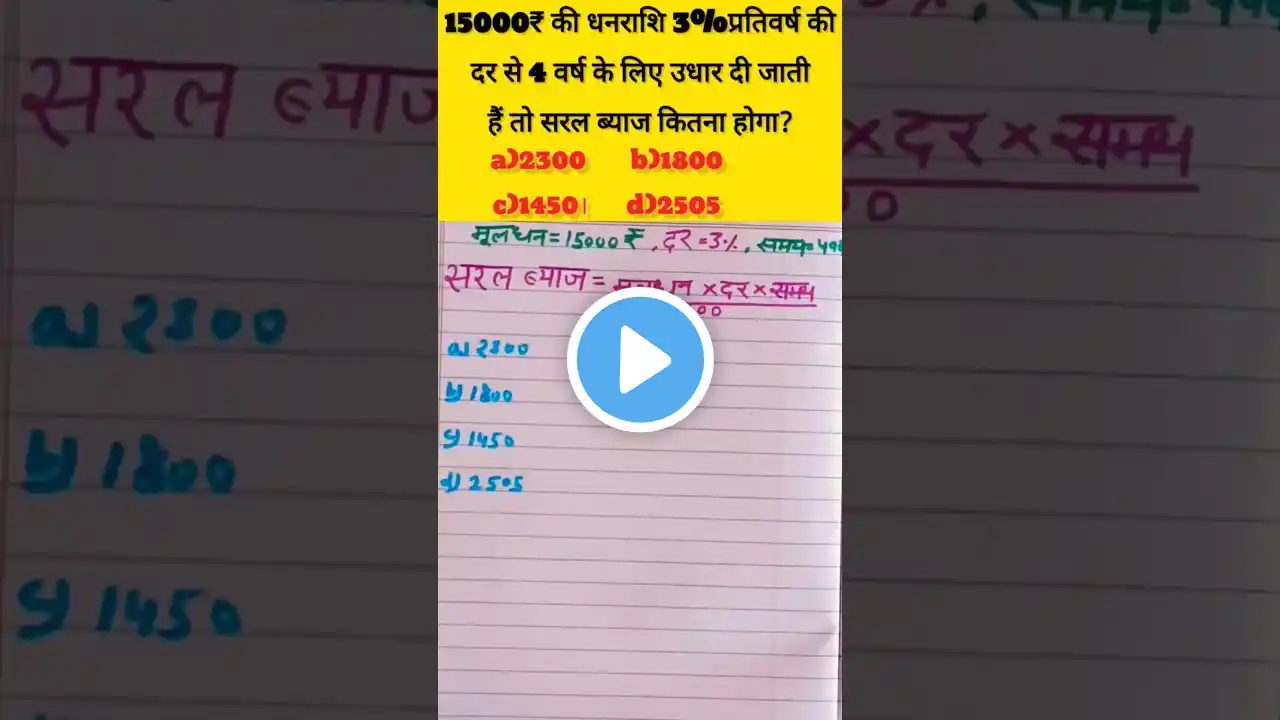 15000₹ की धनराशि 3%प्रतिवर्ष की
दर से 4 वर्ष के लिए उधार दी जाती
हैं तो सरल ब्याज कितना होगा?
a)2300 b)1800
c)1450। d)2505
मूलधन=15000₹, दर=3%, समय=
सरल ब्याज= मूलधन ×दर×समय
00
a) 2300
b) 1800
c) 1450
d) 2505
सरल ब्याज
×दर×समय
0
a) 2300
b) 1800
c) 1450